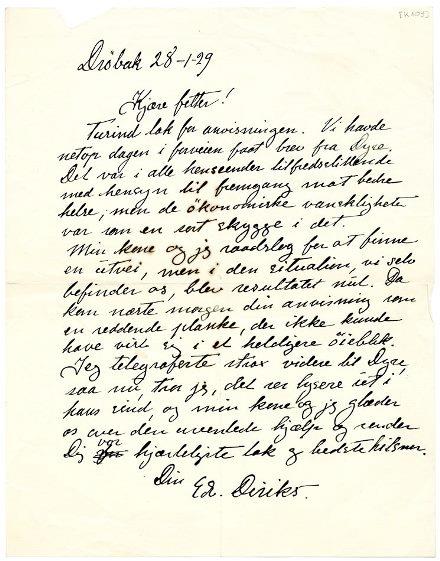 Drøbak 28-1-29
Kjære fetter!
Tusind tak for anvisningen. Vi havde
netop dagen i forveien faat brev fra Dyre.
Det var i alle henseender tilfredsstillende
med hensyn til fremgang mot bedre
helse, men de økonomiske vanskligheter
var som en sort skygge i det.
Min kone og jeg raadslog for at finne
en utvei, men i den situation, vi selv
befinder os, blev resultatet nul. Da
kom næste morgen din anvisning som
en reddende planke, der ikke kunde
have vist sig i et heldigere øieblik.
Jeg telegraferte strax videre til Dyre,
saa nu tror jeg, det ser lysere ut i
hans sind, og min kone og jeg glæder
os over den uventede hjælp og sender
Dig vor hjærteligste tak og bedste hilsner.
Din
Ed. Diriks.